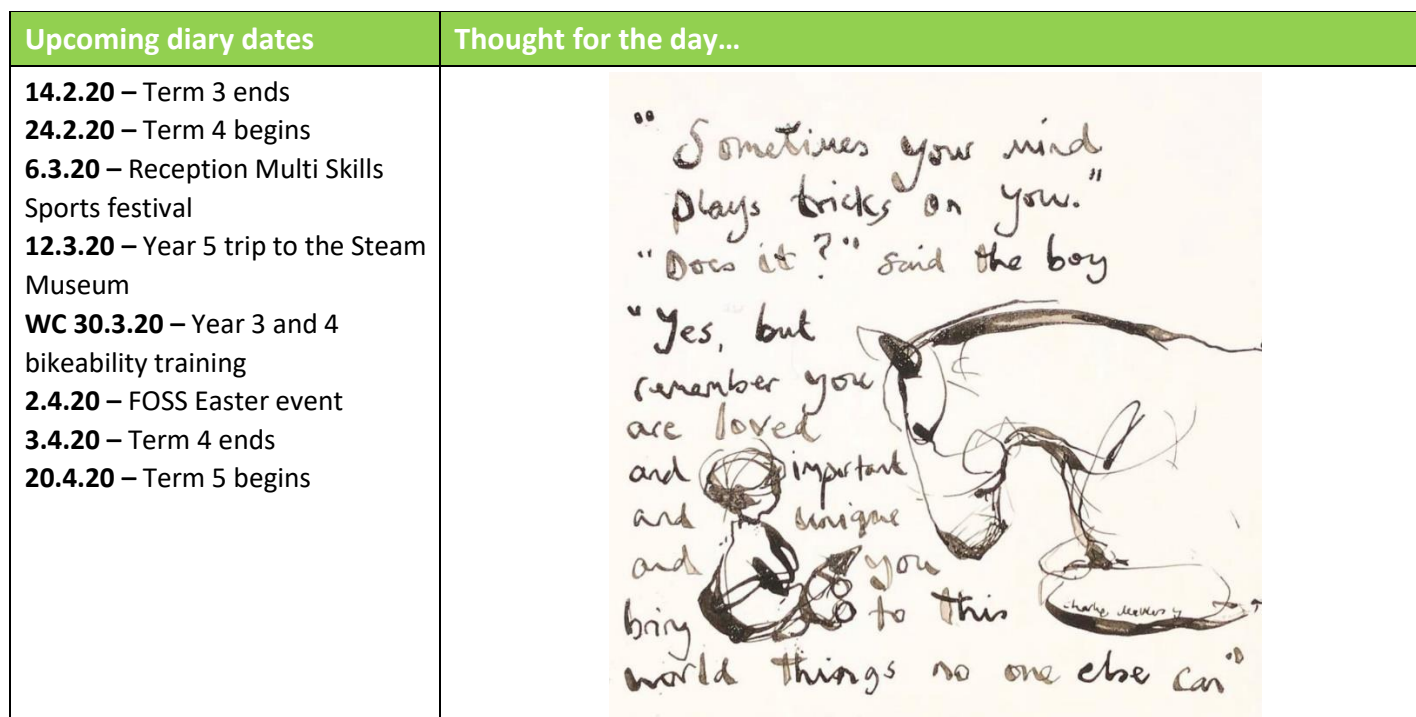 Upcoming diary dates
Thought for the day…
14.2.20 – Term 3 ends
24.2.20 – Term 4 begins
6.3.20 – Reception Multi Skills
Sports festival
12.3.20 – Year 5 trip to the Steam
Museum
WC 30.3.20 – Year 3 and 4
bikeability training
2.4.20 – FOSS Easter event
3.4.20 – Term 4 ends
20.4.20 – Term 5 begins
"Sometimes your mind
plays tricks on you."
"Does it?" said the boy
"Yes, but
remember you
are loved
and important
and unique
and you
bring to this
world things no one else can"